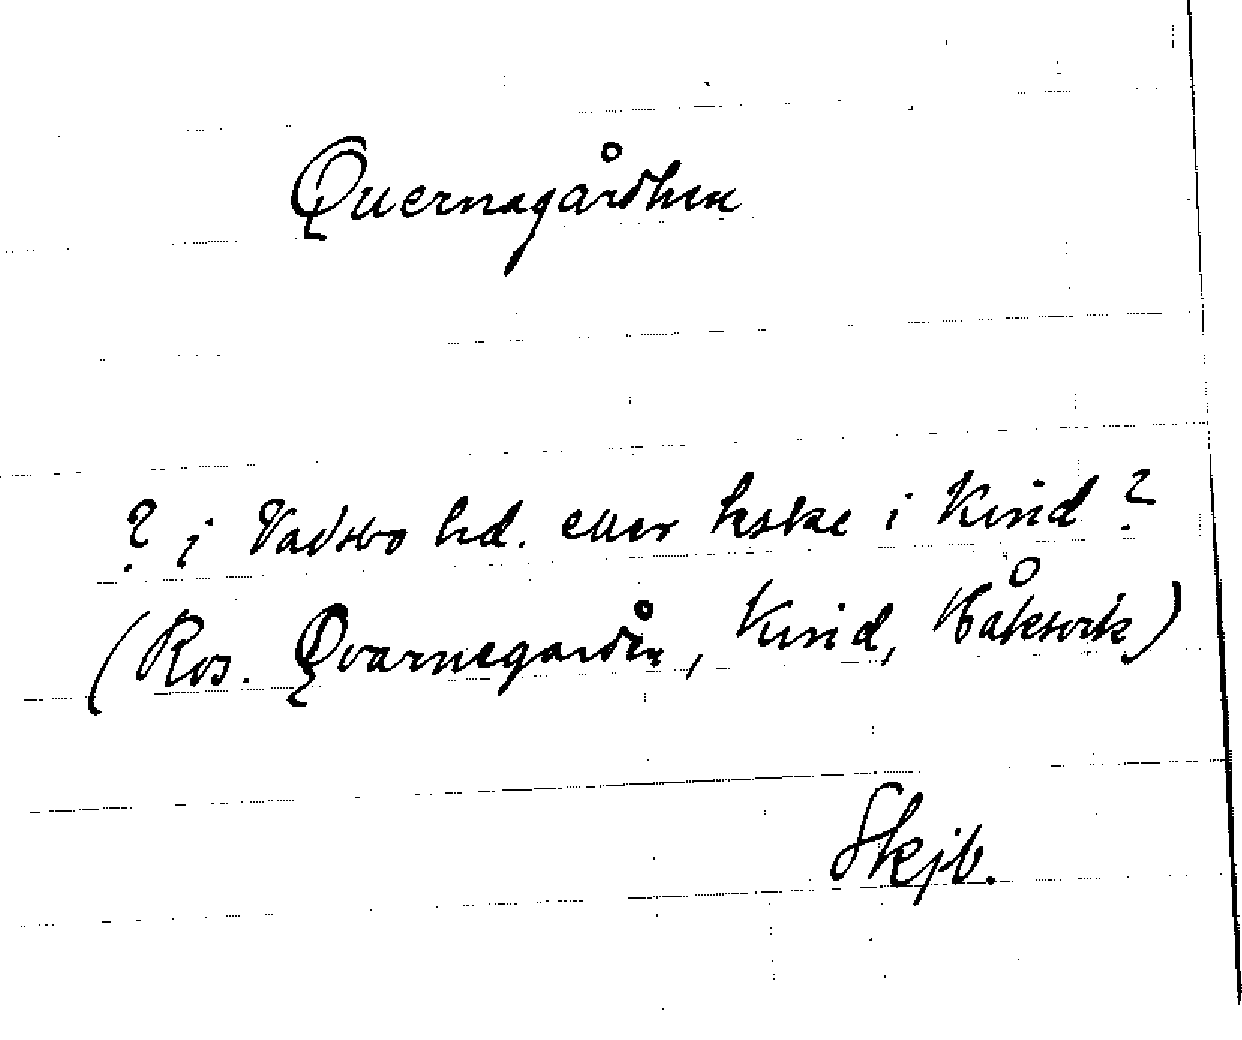 Quernagårdhen
? i Vadsbo hd. eller kske i Kind ?
(Ros. Qvarnegården, Kind, Håksvik)
Skjb.